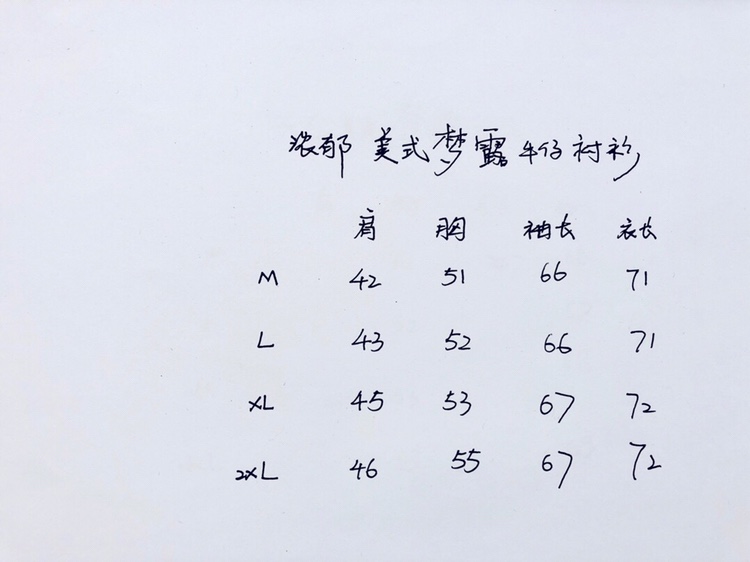 浓郁 美式梦露牛仔衬衫
肩 胸 袖长 衣长
M 42 51 66 71
L 43 52 66 71
XL 45 53 67 72
2XL 46 55 67 72